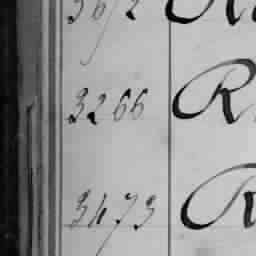 3266 R
3473 R